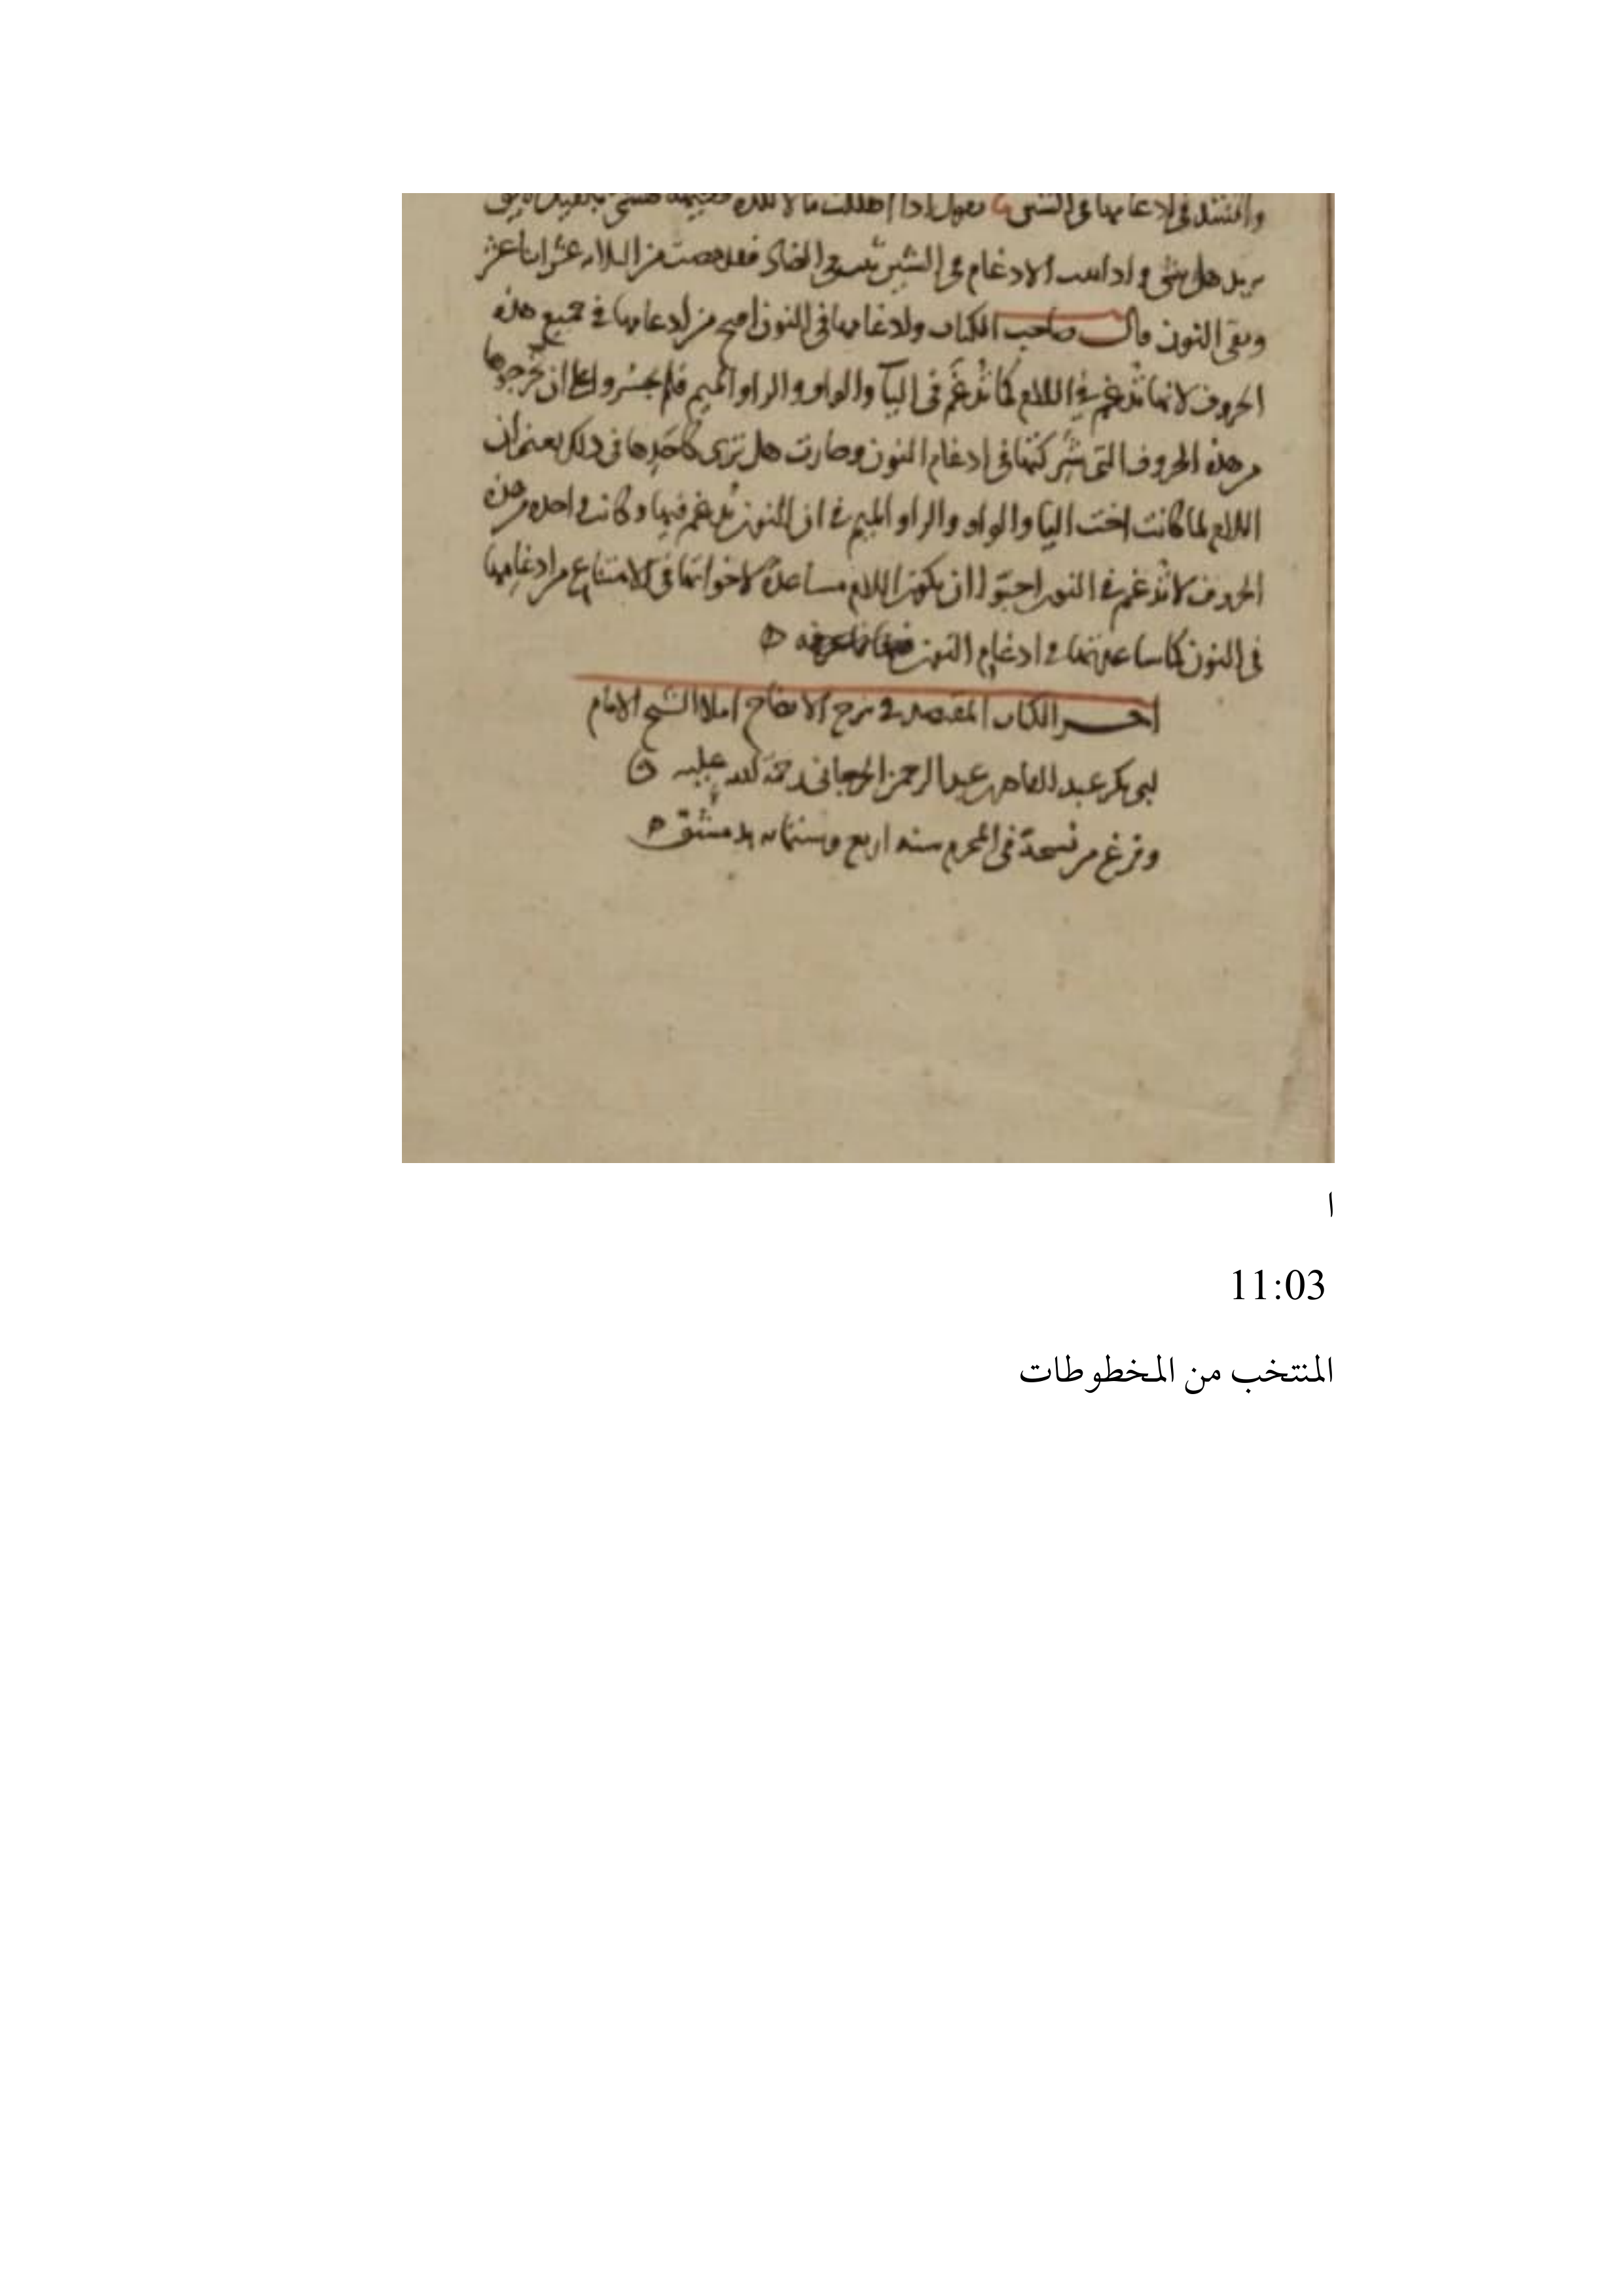 وانشد في ادغامها في الشين تقول اذا
يريد هل شي واذا الادغام في الشين في الضاد فقد من الثلاثه عشر اثنا عشر
وبقى النون قال صاحب الكتاب وادغامها في النون اقبح من ادغامها في جميع هذه
الحروف لانها تدغم في اللام كما تدغم في اليآ والواو والرا والميم فلم يجسروا على ان يخرجوها
من هذه الحروف التي شركتها في ادغام النون وصارت هل نرى كاحدها في ذلك يعني ان
اللام لما كانت اخت اليا والواو والرا والميم في ان النون تدغم فيها وكانت واحده من هذه
الحروف لا تدغم في النون احبوا ان يكون اللام مساعدة لاخواتها في الامتناع من ادغامها
في النون كما ساعدتها في ادغام النون فيها فاعرفه ه
اخر الكتاب المقتصد في شرح الايضاح املا الشيخ الامام
ابي بكر عبد القاهر عبد الرحمن الجرجاني رحمة الله عليه ه
وفرغ من نسخة في المحرم سنه اربع وستمايه بدمشق ه
ا
11:03
المنتخب من المخطوطات